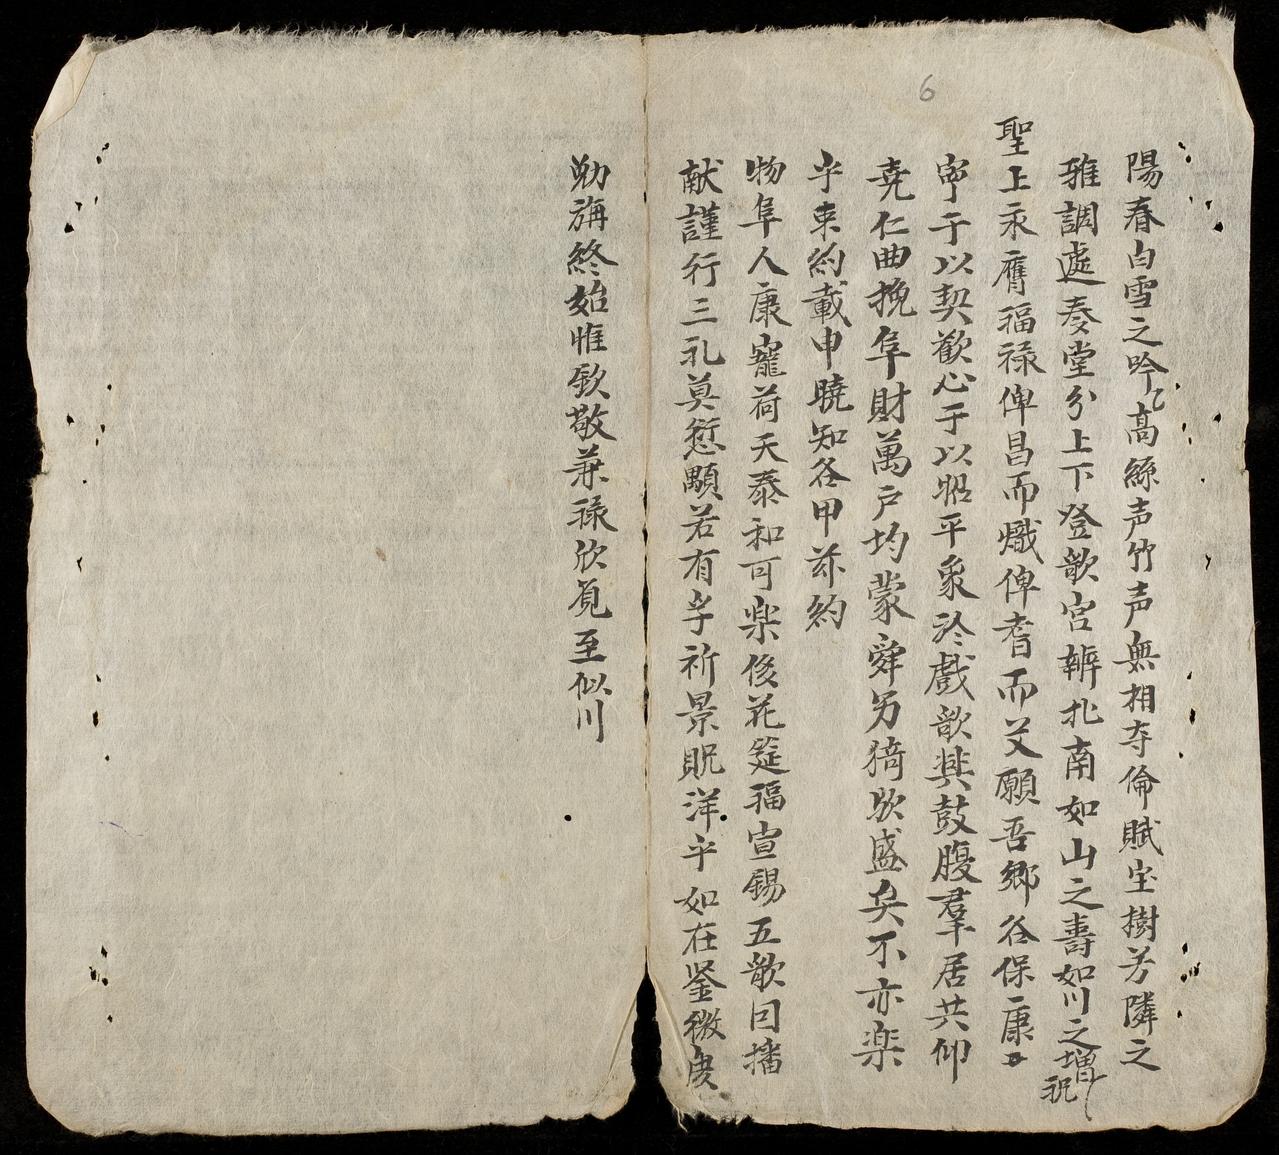 6
陽春白雪之吟乙高絲声竹声無相夺倫賦宝樹芳隣之
雅調迭奏堂分上下登歌宫辨北南如山之壽如川之增祝
聖上永膺福禄俾昌而熾俾耆而艾願吾鄉各保康
寧于以契歡心于以昭平象泠戲歌㒷鼓腹羣居共仰
尭仁曲挽阜財萬户均蒙舜另猗欤盛矣不亦楽
乎束約載申曉知各甲茲約
物阜人康寵荷天泰和可楽俊花筵福宣錫五歌囘播
献謹行三礼莫愆顒若有孚祈景貺洋乎如在鉴微虔
勅旃終始惟欽敬兼禄欣覓至似川